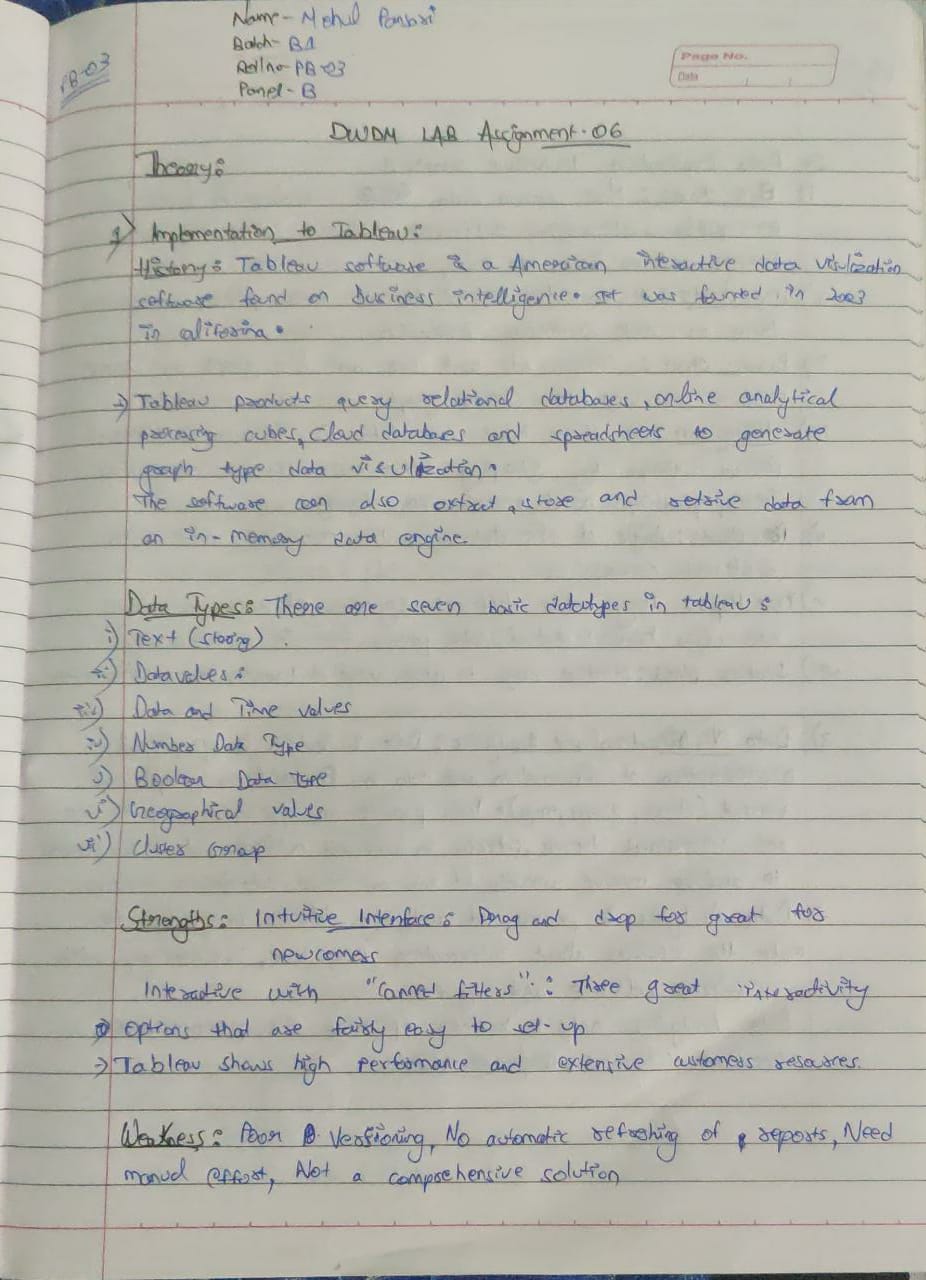 Name- Mehul
Batch- B1
Rollno- PB-03
Panel- B
PB-03
Page No.
Date
DWDM LAB Assignment-06
Theory:
1) Implementation to Tableau:
History: Tableau software is a American interactive data visulization
software found on business intelligence. It was founded in 2003
in califorina.
→ Tableau products query relational databases, online analytical
processing cubes, cloud databases and spreadsheets to generate
graph type data visulization.
The software can also extract, store and retrive data from
an in-memory data engine.
Data Types: There are seven basic datatypes in tableau:
i) Text (string)
ii) Datavalues:
iii) Data and Time values
iv) Number Data Type
v) Boolean Data Type
vi) Geographical values
vii) Cluser Group
Strengths: Intuitive Interface: Drag and drop for great for
newcomers
Interactive with "Canned filters": Three great interactivity
options that are fairly easy to set-up
→ Tableau shows high performance and extensive customers resources.
Weakness: Poor Versioning, No automatic refreshing of reports, Need
manual effort, Not a comprehensive solution